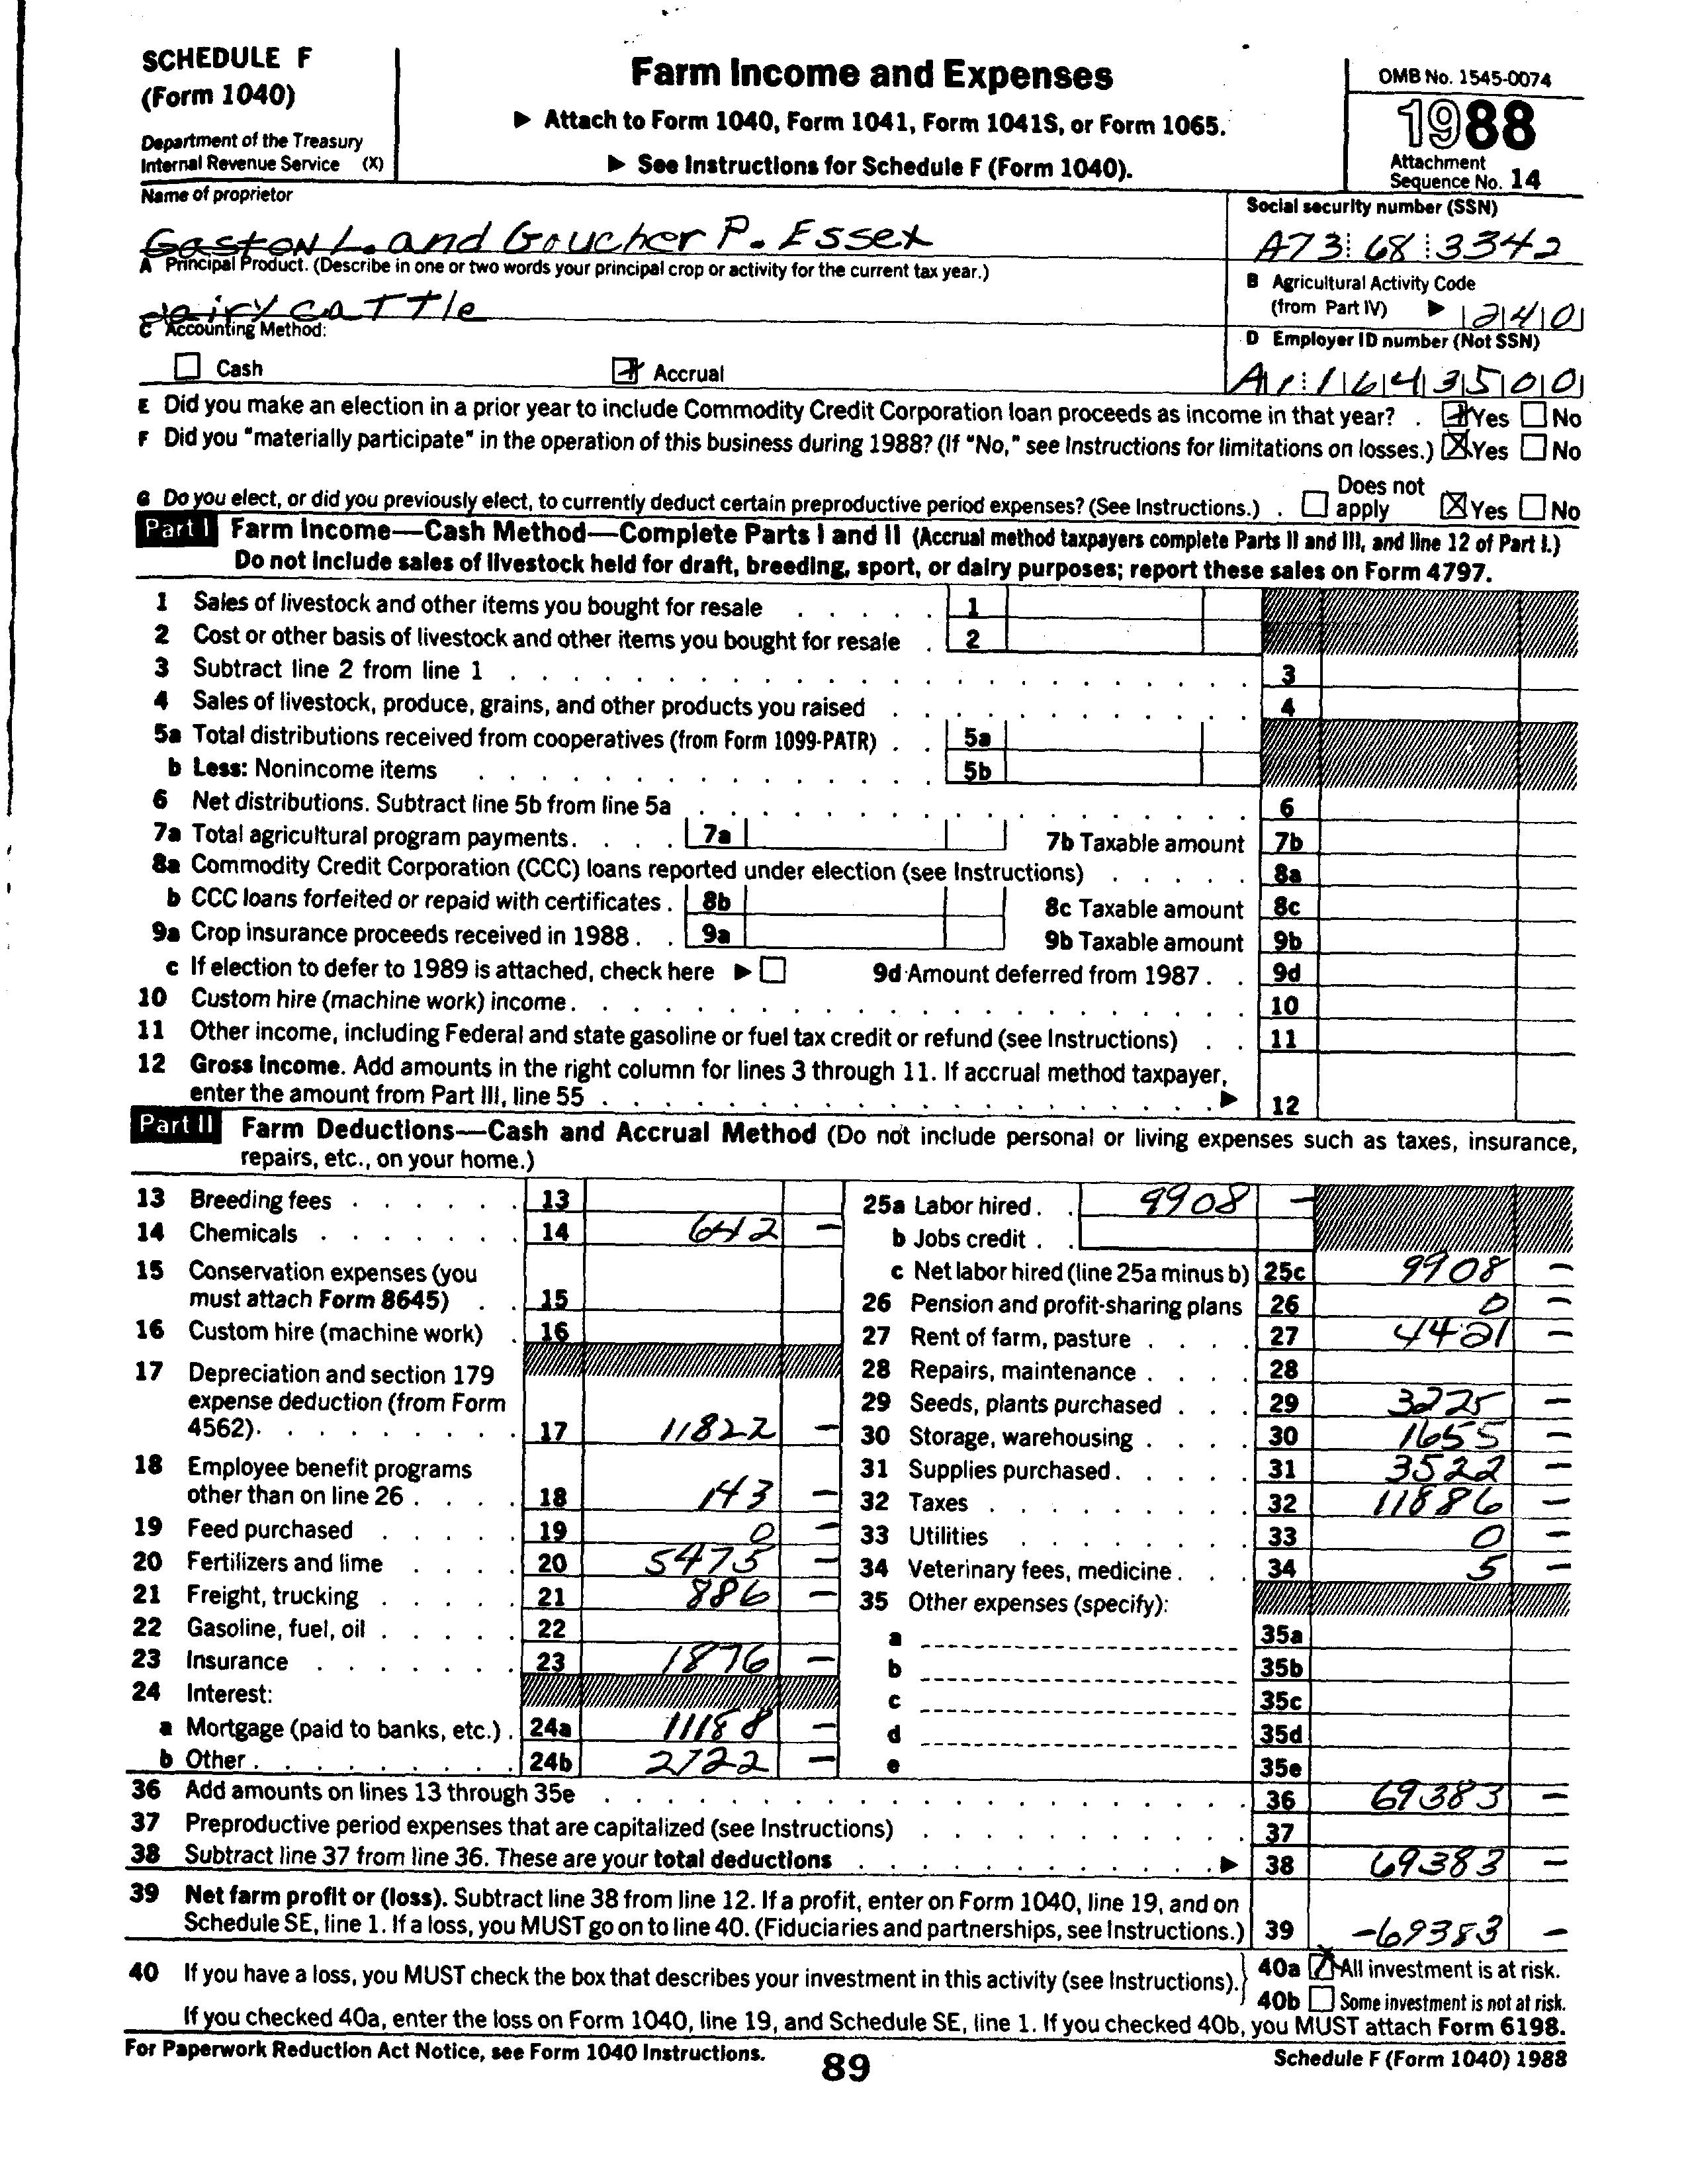 SCHEDULE F
(Form 1040)
Department of the Treasury
Internal Revenue Service (X)
Farm Income and Expenses
▶ Attach to Form 1040, Form 1041, Form 1041S, or Form 1065.
▶ See Instructions for Schedule F (Form 1040).
OMB No. 1545-0074
1988
Attachment
Sequence No. 14
Name of proprietor
Gaston L. and Goucher P. Essex
Social security number (SSN)
A73 68 3342
A Principal Product. (Describe in one or two words your principal crop or activity for the current tax year.)
dairy cattle
B Agricultural Activity Code
(from Part IV) ▶ 240
C Accounting Method:
Cash Accrual
D Employer ID number (Not SSN)
A1 1643500
E Did you make an election in a prior year to include Commodity Credit Corporation loan proceeds as income in that year? . Yes No
F Did you "materially participate" in the operation of this business during 1988? (If "No," see Instructions for limitations on losses.) Yes No
G Do you elect, or did you previously elect, to currently deduct certain preproductive period expenses? (See Instructions.) . Does not apply Yes No
Part I Farm Income—Cash Method—Complete Parts I and II (Accrual method taxpayers complete Parts II and III, and line 12 of Part I.)
Do not include sales of livestock held for draft, breeding, sport, or dairy purposes; report these sales on Form 4797.
1 Sales of livestock and other items you bought for resale 1
2 Cost or other basis of livestock and other items you bought for resale 2
3 Subtract line 2 from line 1 3
4 Sales of livestock, produce, grains, and other products you raised 4
5a Total distributions received from cooperatives (from Form 1099-PATR) 5a
b Less: Nonincome items 5b
6 Net distributions. Subtract line 5b from line 5a 6
7a Total agricultural program payments. 7a 7b Taxable amount 7b
8a Commodity Credit Corporation (CCC) loans reported under election (see Instructions) 8a
b CCC loans forfeited or repaid with certificates. 8b 8c Taxable amount 8c
9a Crop insurance proceeds received in 1988. 9a 9b Taxable amount 9b
c If election to defer to 1989 is attached, check here ▶ 9d Amount deferred from 1987. 9d
10 Custom hire (machine work) income. 10
11 Other income, including Federal and state gasoline or fuel tax credit or refund (see Instructions) 11
12 Gross Income. Add amounts in the right column for lines 3 through 11. If accrual method taxpayer,
enter the amount from Part III, line 55 ▶ 12
Part II Farm Deductions—Cash and Accrual Method (Do not include personal or living expenses such as taxes, insurance,
repairs, etc., on your home.)
13 Breeding fees 13
14 Chemicals 14 642 —
15 Conservation expenses (you
must attach Form 8645) 15
16 Custom hire (machine work) 16
17 Depreciation and section 179
expense deduction (from Form
4562). 17 11822 —
18 Employee benefit programs
other than on line 26 18 143 —
19 Feed purchased 19 0 —
20 Fertilizers and lime 20 5475 —
21 Freight, trucking 21 886 —
22 Gasoline, fuel, oil 22
23 Insurance 23 1876 —
24 Interest:
a Mortgage (paid to banks, etc.) 24a 11188 —
b Other 24b 2722 —
25a Labor hired. 9908 —
b Jobs credit
c Net labor hired (line 25a minus b) 25c 9908 —
26 Pension and profit-sharing plans 26 0 —
27 Rent of farm, pasture 27 4421 —
28 Repairs, maintenance 28
29 Seeds, plants purchased 29 3225 —
30 Storage, warehousing 30 1655 —
31 Supplies purchased. 31 3522 —
32 Taxes 32 11886 —
33 Utilities 33 0 —
34 Veterinary fees, medicine. 34 5 —
35 Other expenses (specify):
a 35a
b 35b
c 35c
d 35d
e 35e
36 Add amounts on lines 13 through 35e 36 69383 —
37 Preproductive period expenses that are capitalized (see Instructions) 37
38 Subtract line 37 from line 36. These are your total deductions ▶ 38 69383 —
39 Net farm profit or (loss). Subtract line 38 from line 12. If a profit, enter on Form 1040, line 19, and on
Schedule SE, line 1. If a loss, you MUST go on to line 40. (Fiduciaries and partnerships, see Instructions.) 39 -69383 —
40 If you have a loss, you MUST check the box that describes your investment in this activity (see Instructions). 40a All investment is at risk.
40b Some investment is not at risk.
If you checked 40a, enter the loss on Form 1040, line 19, and Schedule SE, line 1. If you checked 40b, you MUST attach Form 6198.
For Paperwork Reduction Act Notice, see Form 1040 Instructions.
89
Schedule F (Form 1040) 1988